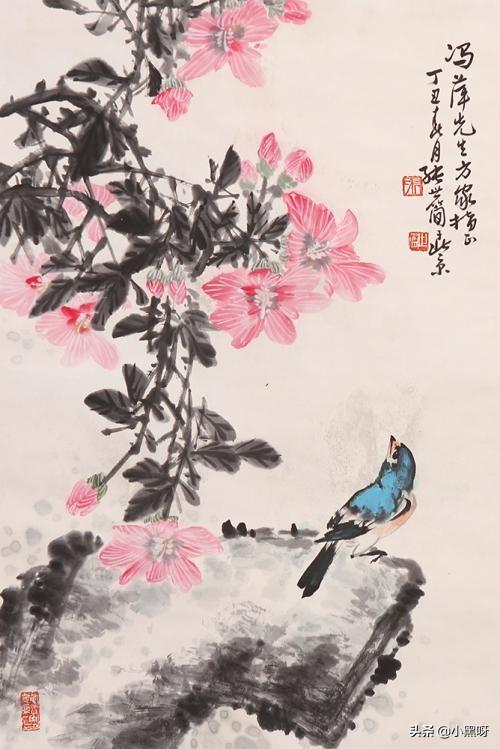 冯萍先生方家指正
丁丑春月张世简北京
头条 @小黑呀